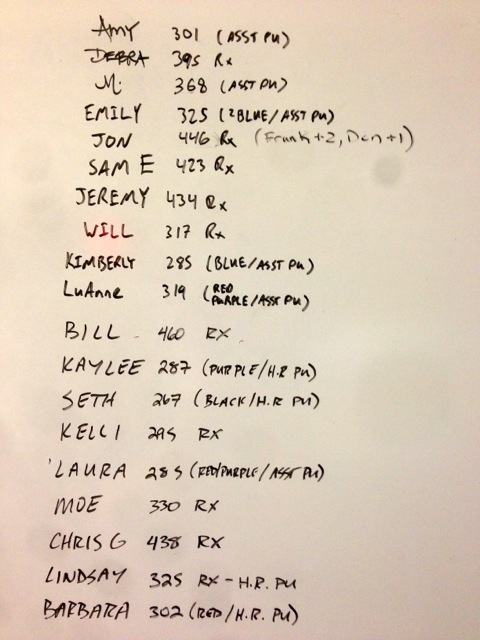 AMY 301 (ASST PU)
DEBRA 395 Rx
M. 368 (ASST PU)
EMILY 325 (2BLUE/ASST PU)
JON 446 Rx (Frank+2, Dan+1)
SAM E 423 Rx
JEREMY 434 Rx
WILL 317 Rx
KIMBERLY 285 (BLUE/ASST PU)
LuAnne 319 (RED PURPLE/ASST PU)
BILL 460 RX
KAYLEE 287 (PURPLE/H.R PU)
SETH 267 (BLACK/H.R PU)
KELLI 295 RX
LAURA 285 (RED/PURPLE/ASST PU)
MOE 330 RX
CHRIS G 438 RX
LINDSAY 325 RX - H.R. PU
BARBARA 302 (RED/H.R. PU)